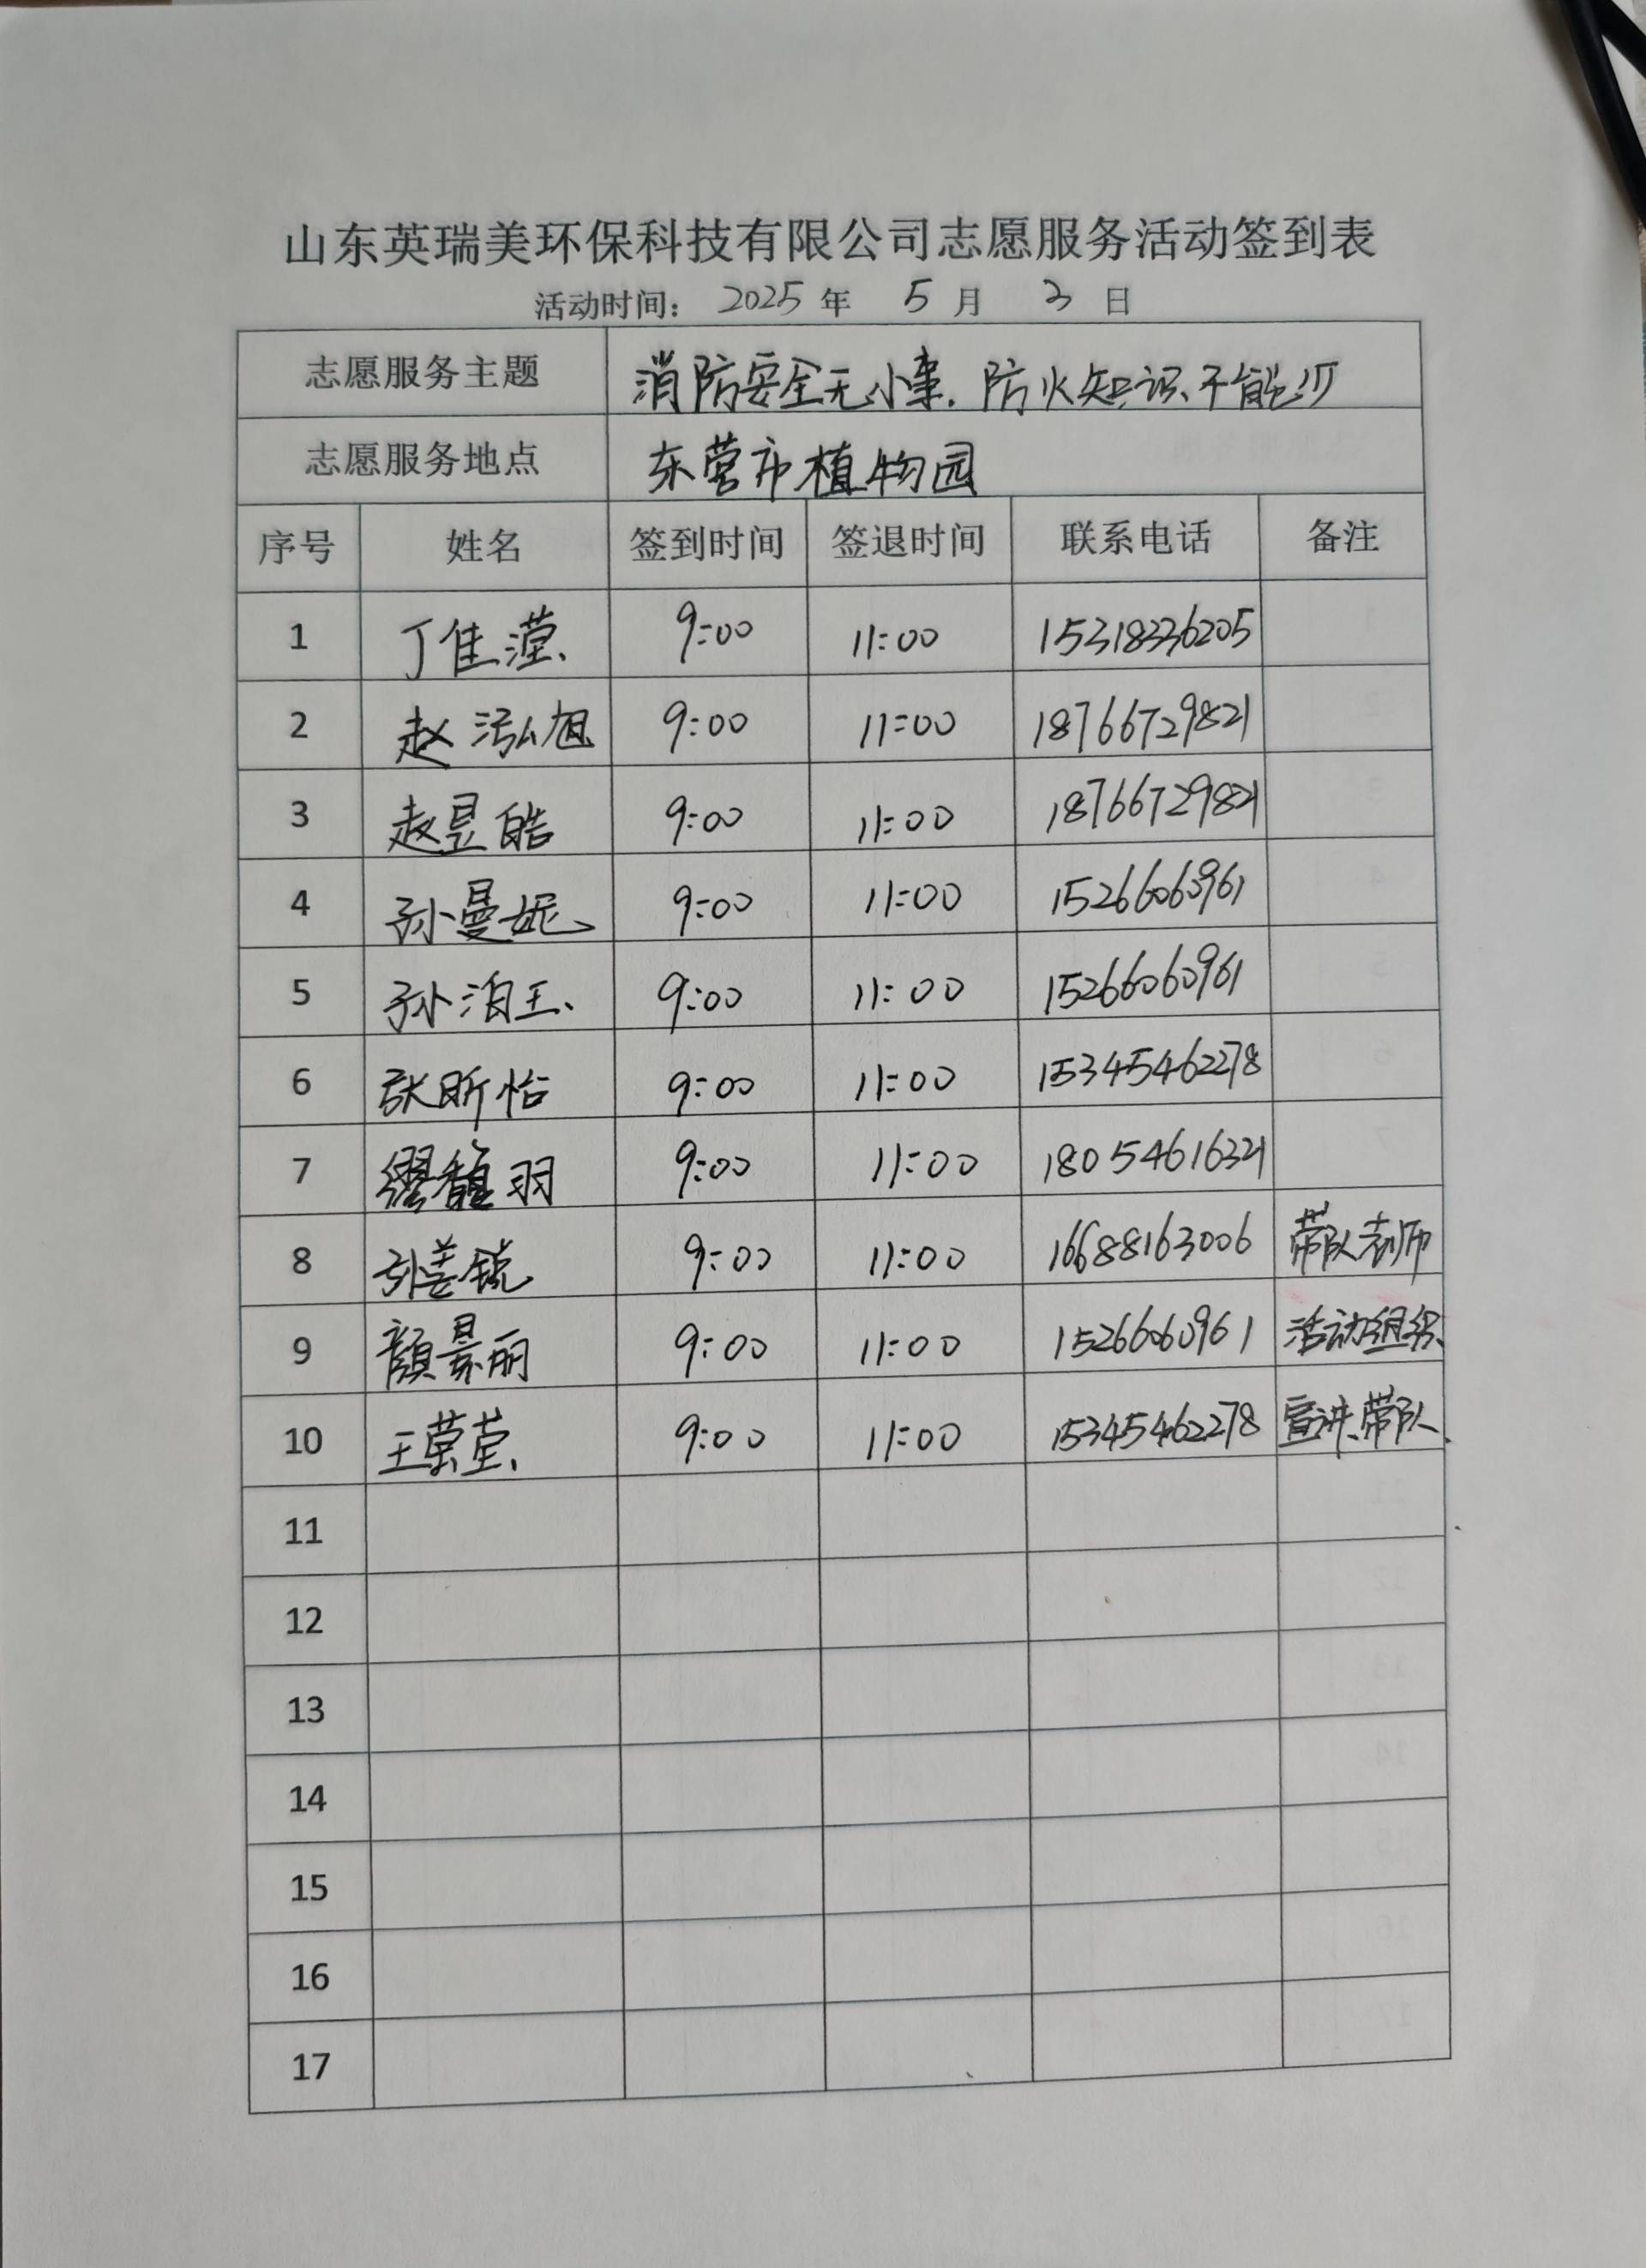 山东英瑞美环保科技有限公司志愿服务活动签到表
活动时间: 2025 年 5 月 3 日
志愿服务主题 消防安全无小事. 防火知识不能少
志愿服务地点 东营市植物园
序号 姓名 签到时间 签退时间 联系电话 备注
1 丁佳滢 9:00 11:00 15318336205
2 赵泓旭 9:00 11:00 18766729821
3 赵昱皓 9:00 11:00 18766729821
4 孙曼妮 9:00 11:00 15266060961
5 孙洎王 9:00 11:00 15266060961
6 张昕怡 9:00 11:00 15345462278
7 缪馥羽 9:00 11:00 18054616321
8 孙姜锐 9:00 11:00 16688163006 带队老师
9 颜景丽 9:00 11:00 15266060961 活动组织
10 王莹莹 9:00 11:00 15345462278 宣讲、带队
11
12
13
14
15
16
17